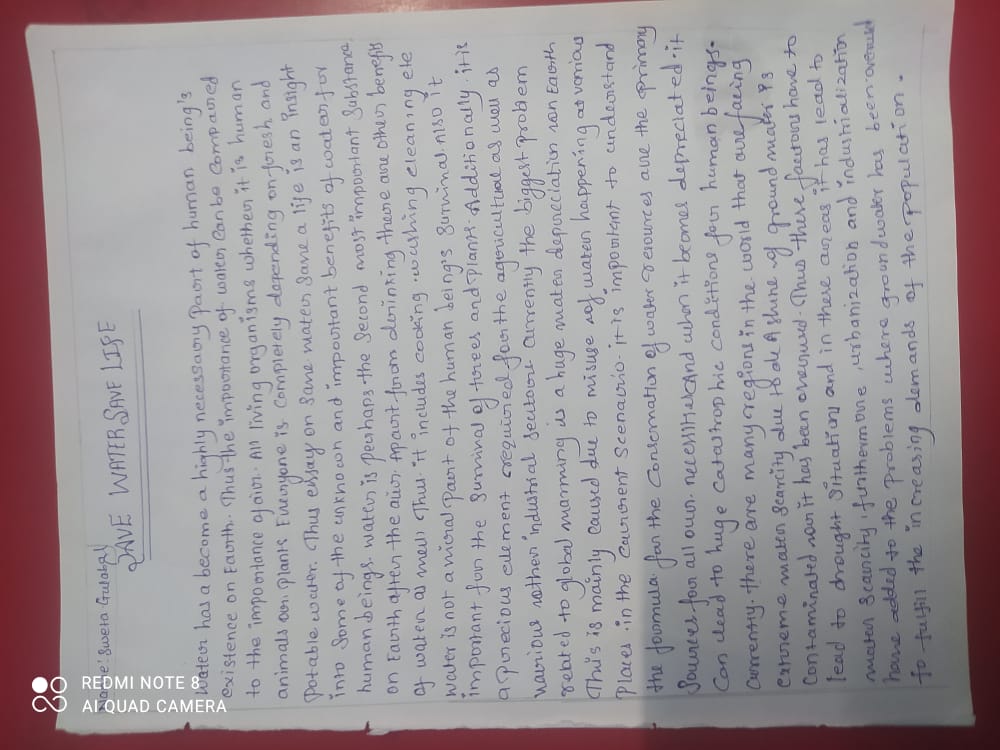 Name: Sweta Gulabal
SAVE WATER SAVE LIFE
Water has become a highly necessary part of human being's
existence on Earth. Thus the importance of water can be compared
to the importance of air. All living organisms whether it is human
animals or plants Everyone is completely depending on fresh and
Potable water. Thus essay on save water save a life is an insight
into Some of the unknown and important benefits of water for
human beings. water is Perhaps the Second most important Substance
on Earth after the air. Apart from drinking there are other benefits
of water as well Thus. it includes cooking. washing cleaning etc
Water is not a part of the human being's survival. Also it
important for the Survival of trees and plants. Additionally, it is
a precious element required for the agricultural as well as
various other industrial currently the biggest problem
related to global warming is a huge water depreciation on Earth
This is mainly caused due to misuse of water happening at various
Places. in the Current Scenario. it is important to understand
the formula for the Conservation of water resources are the primary
Sources for all our. and when it becomes depreciated. it
Can lead to huge Catastrophic conditions for human beings.
Currently. there are many regions in the world that are facing
extreme water scarcity due to of ground water is
contaminated now it has been overused. Thus these factors have to
lead to drought Situation and in these areas it has lead to
water scarcity, furthermore, urbanization and industrialization
have added to the Problems where ground water has been overused
to fulfill the increasing demands of the population.
REDMI NOTE 8
AI QUAD CAMERA